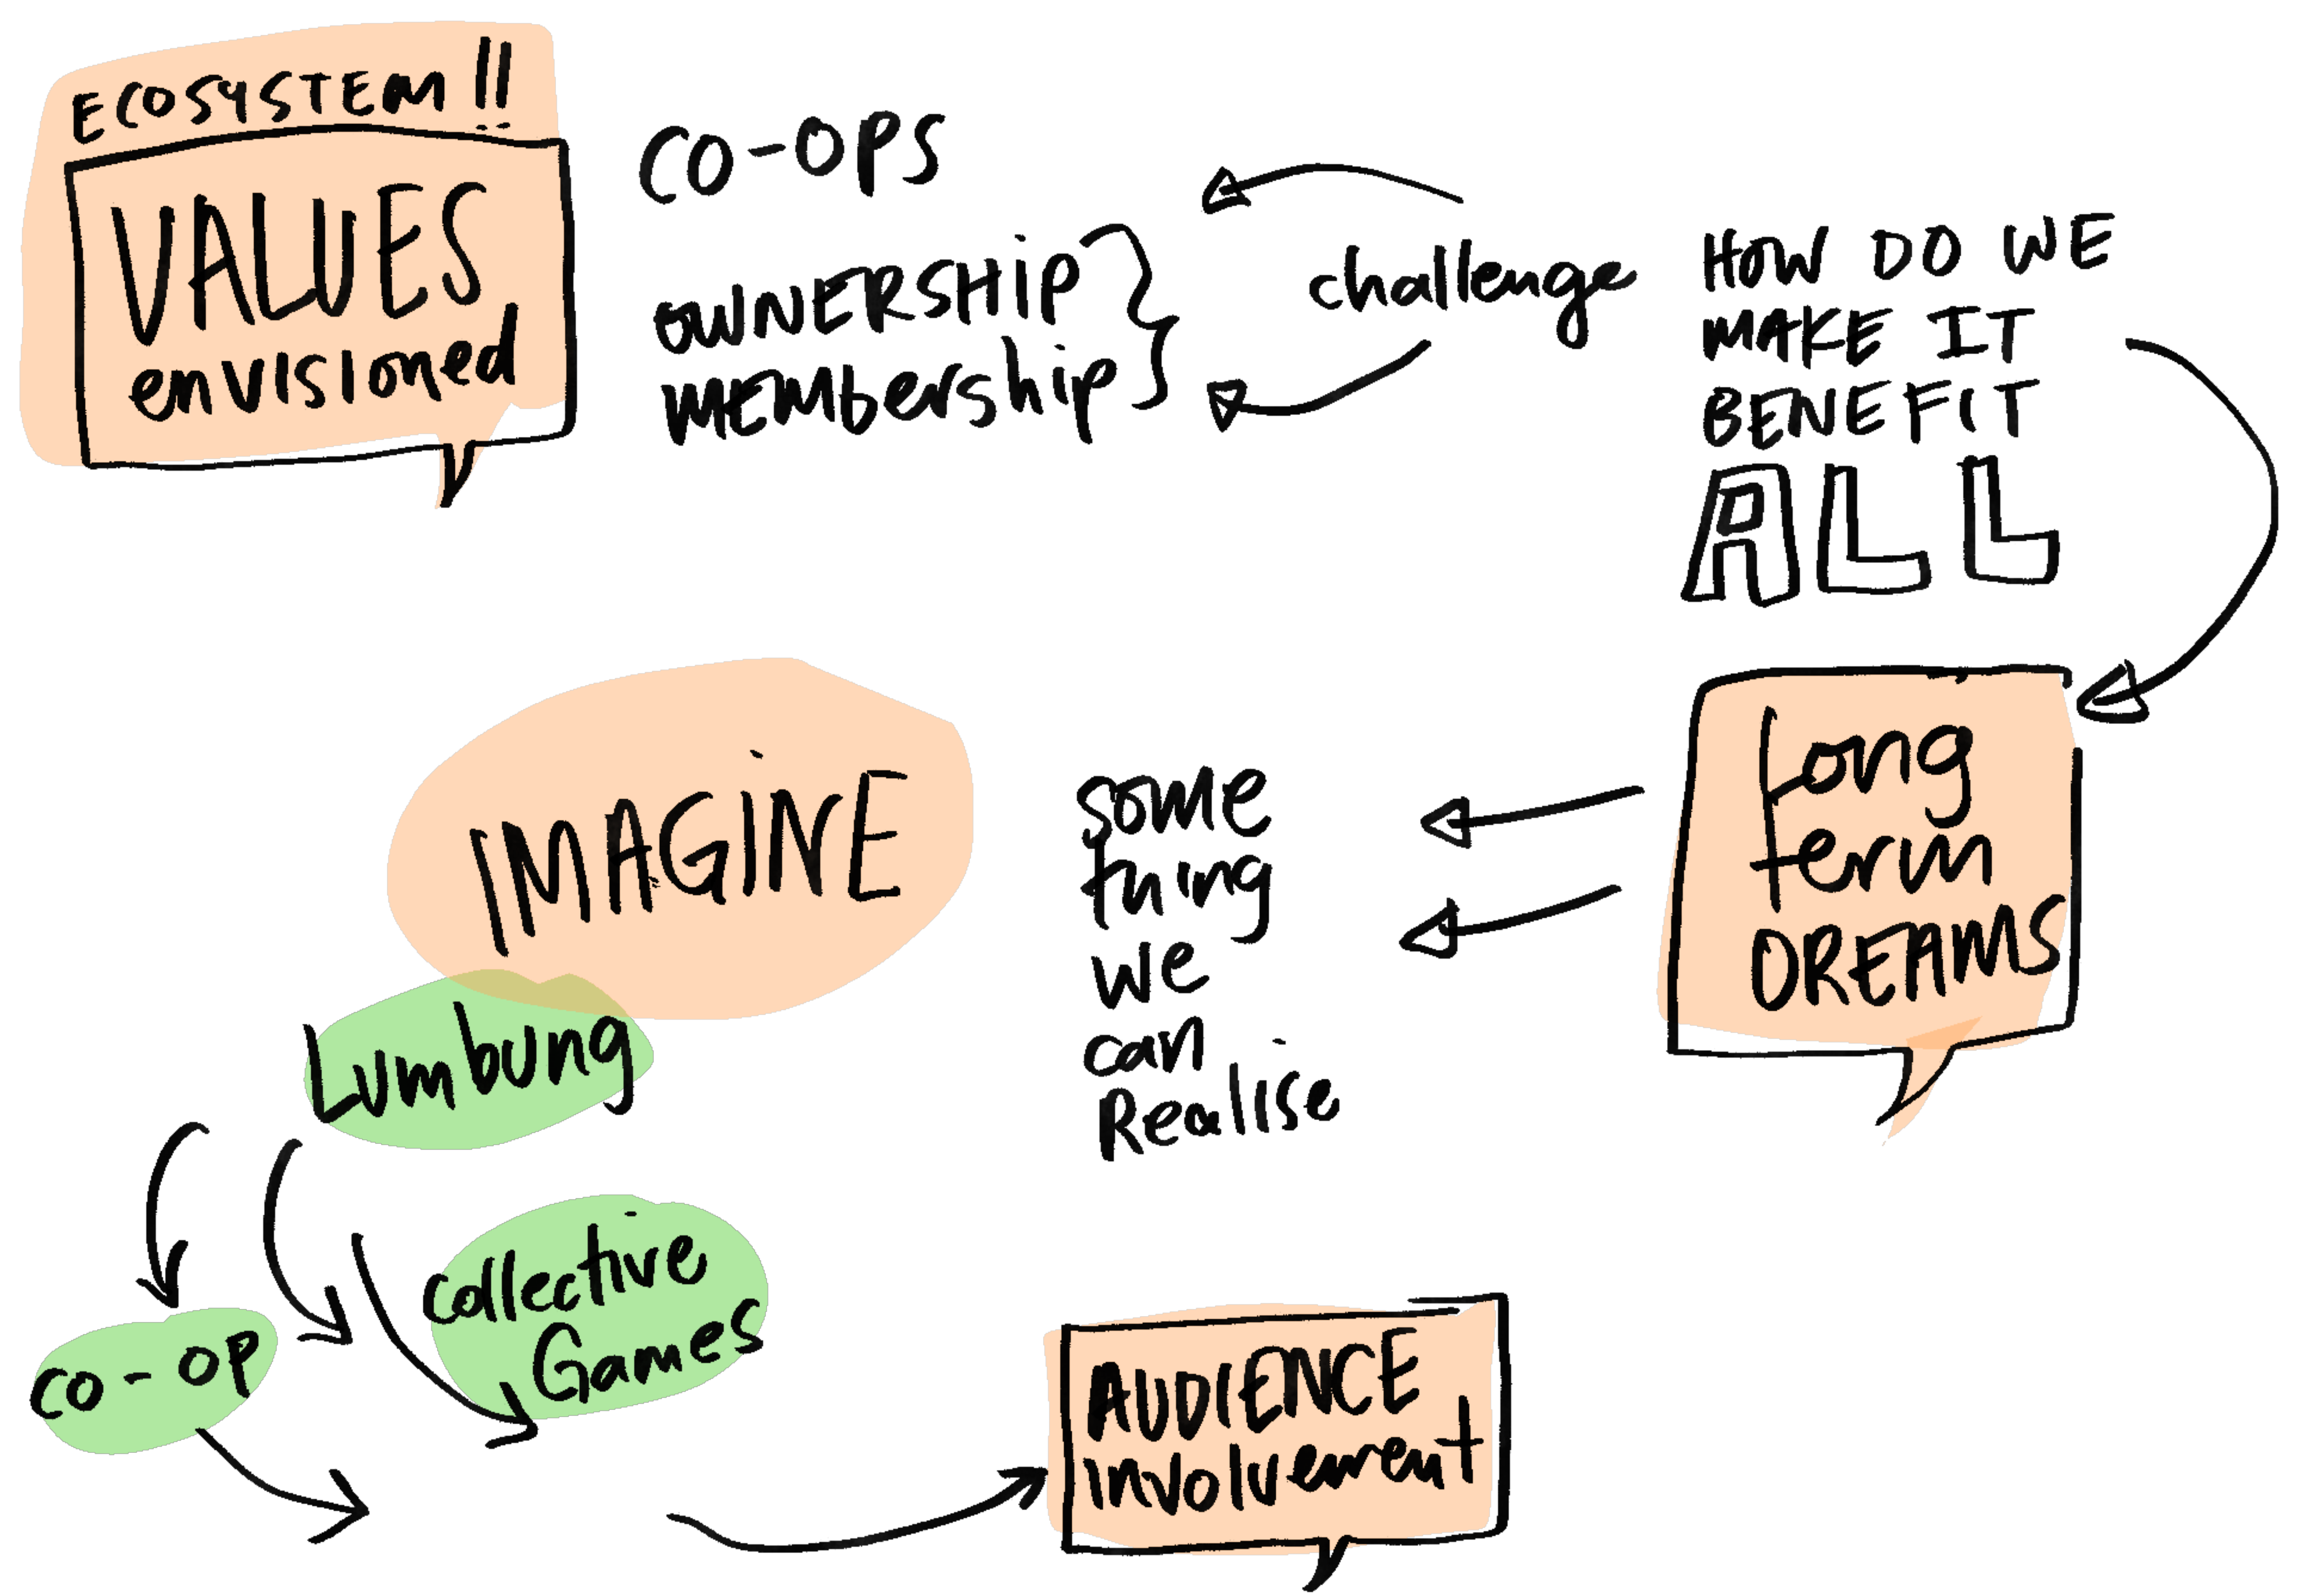 ECOSYSTEM!!
VALUES
envisioned
CO-OPS
OWNERSHIP
MEMbership
challenge
HOW DO WE
MAKE IT
BENEFIT
ALL
Long
term
DREAMS
some
thing
we
can
Realise
IMAGINE
Lumbung
co-op
collective
Games
AUDIENCE
involvement